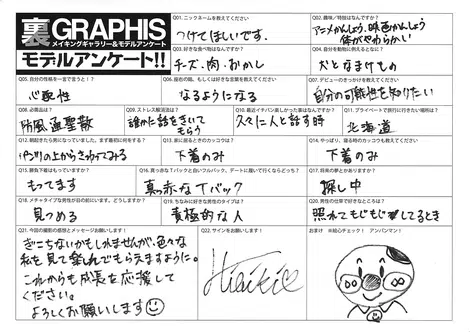 裏GRAPHIS
メイキングギャラリー&モデルアンケート
モデルアンケート!!
Q01. ニックネームを教えてください
つけてほしいです。
Q02. 趣味／特技はなんですか?
アニメかんしょう、映画かんしょう
体がやわらかい
Q03. 好きな食べ物はなんですか?
チーズ、肉、おかし
Q04. 自分を動物に例えるとなに?
犬となまけもの
Q05. 自分の性格を一言で言うと!?
心配性
Q06. 座右の銘、もしくは好きな言葉を教えてください
なるようになる
Q07. デビューのきっかけを教えてください
自分の可能性を知りたい
Q08. 必需品は?
防風通聖散
Q09. ストレス解消法は?
誰かに話をきいて
もらう
Q10. 最近イチバン楽しかった事はなんですか?
久々に人と話す時
Q11. プライベートで旅行に行きたい場所は?
北海道
Q12. 朝起きたら男になっていた、まず最初に何をする?
パンツの上からさわってみる
Q13. 家に居るときのカッコウは?
下着のみ
Q14. やっぱり、寝る時のカッコウも教えてください
下着のみ
Q15. 勝負下着はもっていますか?
もってます
Q16. 真っ赤なTバックと白いフルバック。デートに履いて行くならどっち?
真っ赤なTバック
Q17. 将来の夢とかありますか?
探し中
Q18. メチャタイプな男性が目の前にいます。どうする?
見つめる
Q19. ちなみに好きな男性のタイプは?
積極的な人
Q20. 男性の仕草で好きなところは?
照れてもじもじしてるとき
Q21. 今回の撮影の感想とメッセージお願いします!
ぎこちないかもしれませんが、色々な
私を見て楽しんでもらえますように。
これからも成長を応援して
ください。
よろしくお願いします
Q22. サインをお願いします!
おまけ ※絵心チェック! アンパンマン!